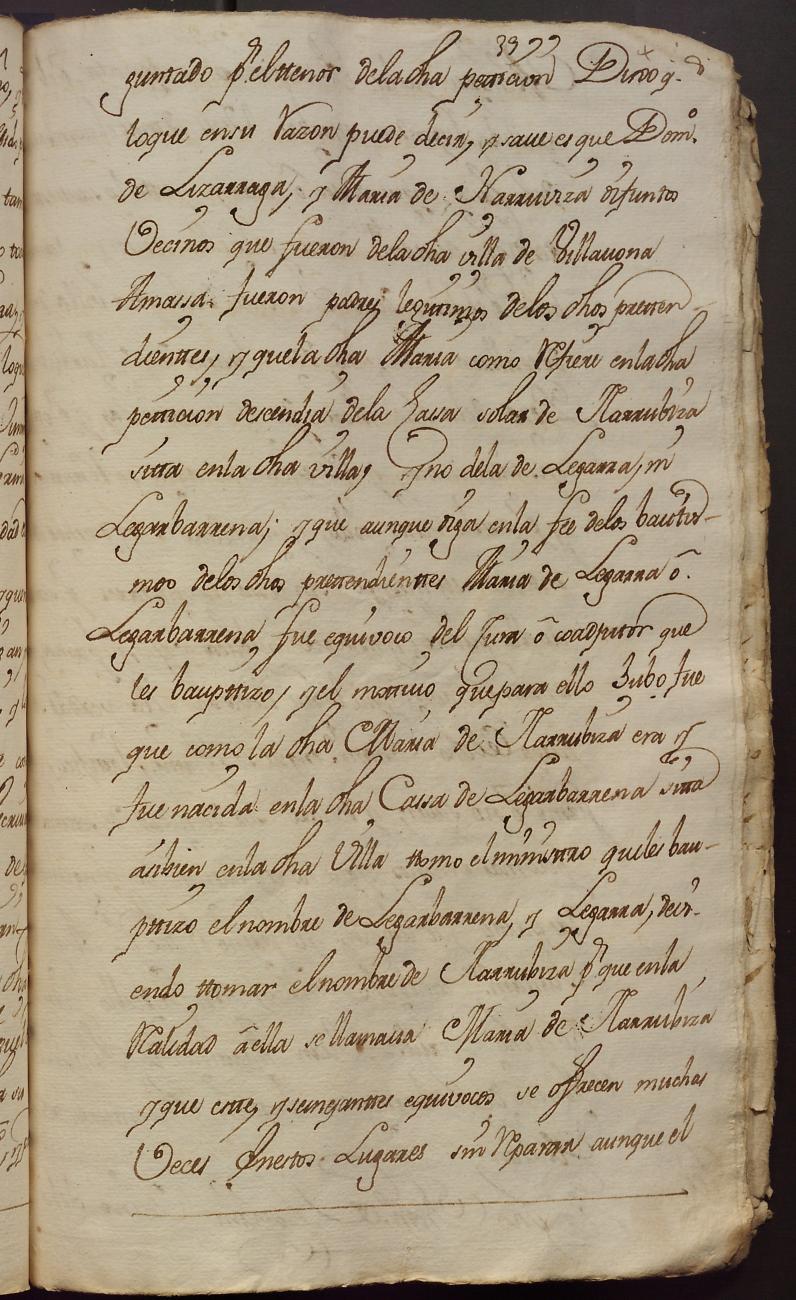 3977
guntado pr el ttenor de la dha petticion Dixo q.
lo que en su Razon puede decir, y save es que Domo.
de Lizarraga, y Maria de Narruviza difuntos
Vecinos que fueron de la dha villa de Villavona
Amassa fueron padres legitimos de los dhos pretten-
dienttes, y que la dha Maria como Refiere en la dha
petticion descendia de la Cassa solar de Narrubiza
sitta en la dha villa, y no de la de Legarra, ni
Legarbarrena; y que aunque diga en la fee de los bauttis-
mos de los dhos prettendienttes Maria de Legarra ô.
Legarbarrena fue equivoco del Cura ô coadjutor que
les baupttizo, y el mottivo que para ello hubo fue
que como la dha Maria de Narrubiza era y
fue nacida en la dha Cassa de Legarbarrena sitta
asibien en la dha Villa ttomo el ministtro que les bau-
pttizo el nombre de Legarbarrena, y Legarra, devi-
endo ttomar el nombre de Narrubiza pr que en la
Realidad â ella se llamava Maria de Narrubiza
y que estte, y semejanttes equivocos se ofrecen muchas
Veces en estos Lugares sin Reparar aunque el